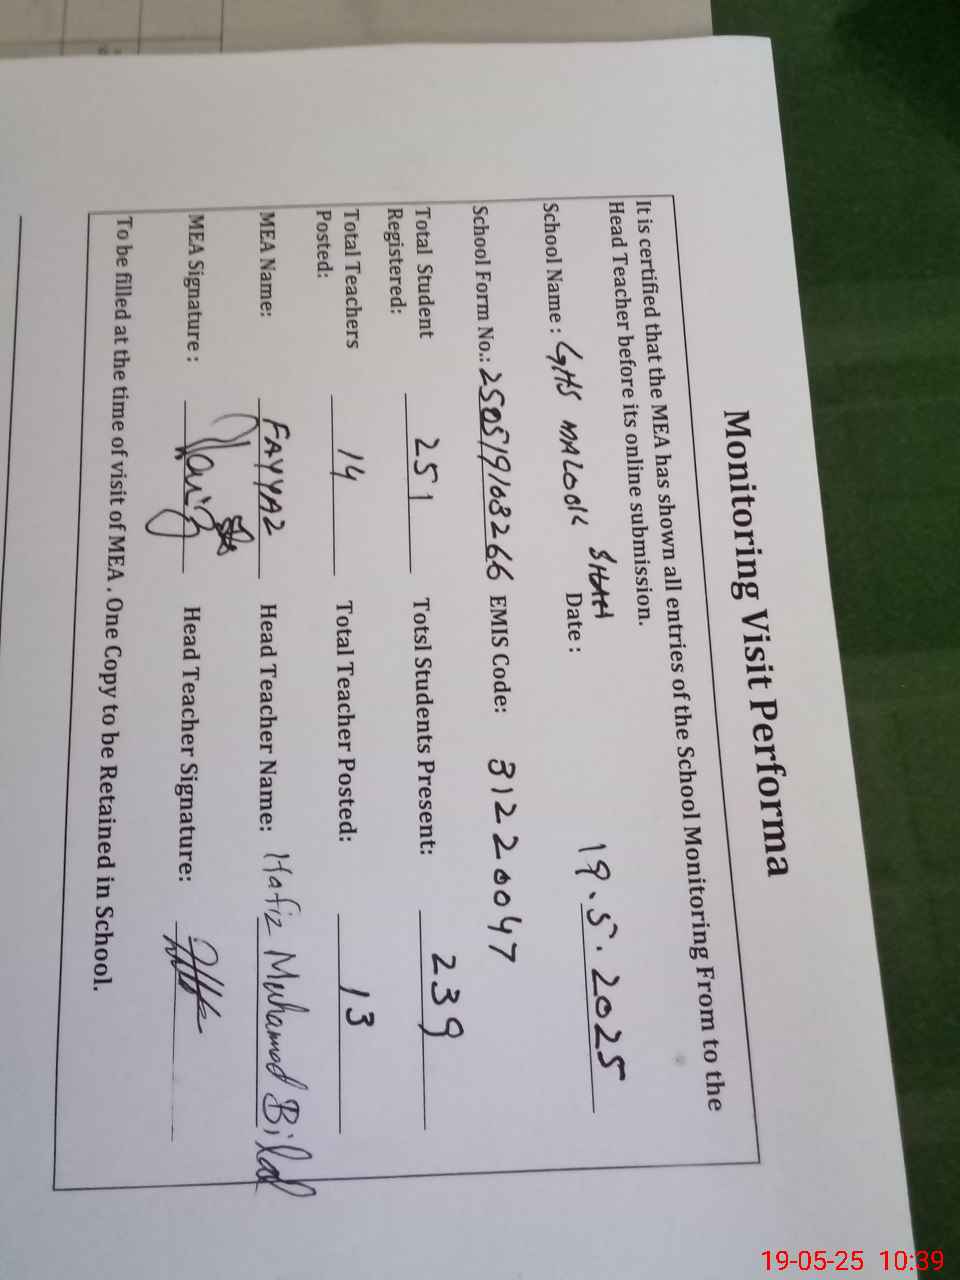 Monitoring Visit Performa
It is certified that the MEA has shown all entries of the School Monitoring From to the
Head Teacher before its online submission.
School Name : GHS MALOOK SHAH Date : 19.5.2025
School Form No.: 250519168266 EMIS Code: 31220047
Total Student Registered: 251 Totsl Students Present: 239
Total Teachers Posted: 14 Total Teacher Posted: 13
MEA Name: FAYYAZ Head Teacher Name: Hafiz Muhammad Bilal
MEA Signature : Head Teacher Signature:
To be filled at the time of visit of MEA . One Copy to be Retained in School.
19-05-25 10:39